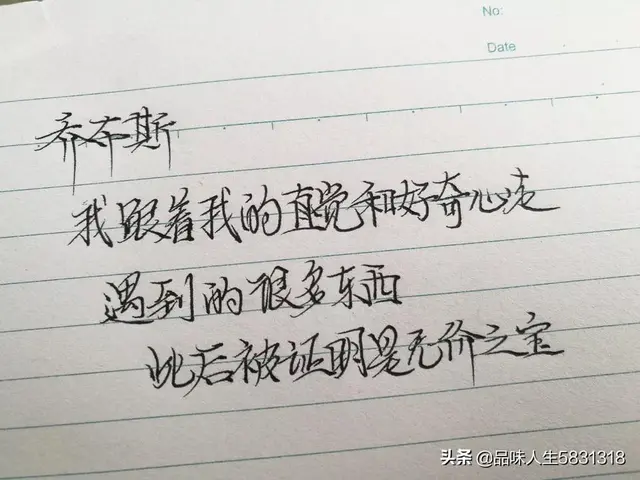 No:
Date
乔布斯
我跟着我的直觉和好奇心走
遇到的很多东西
此后被证明是无价之宝
头条 @品味人生5831318